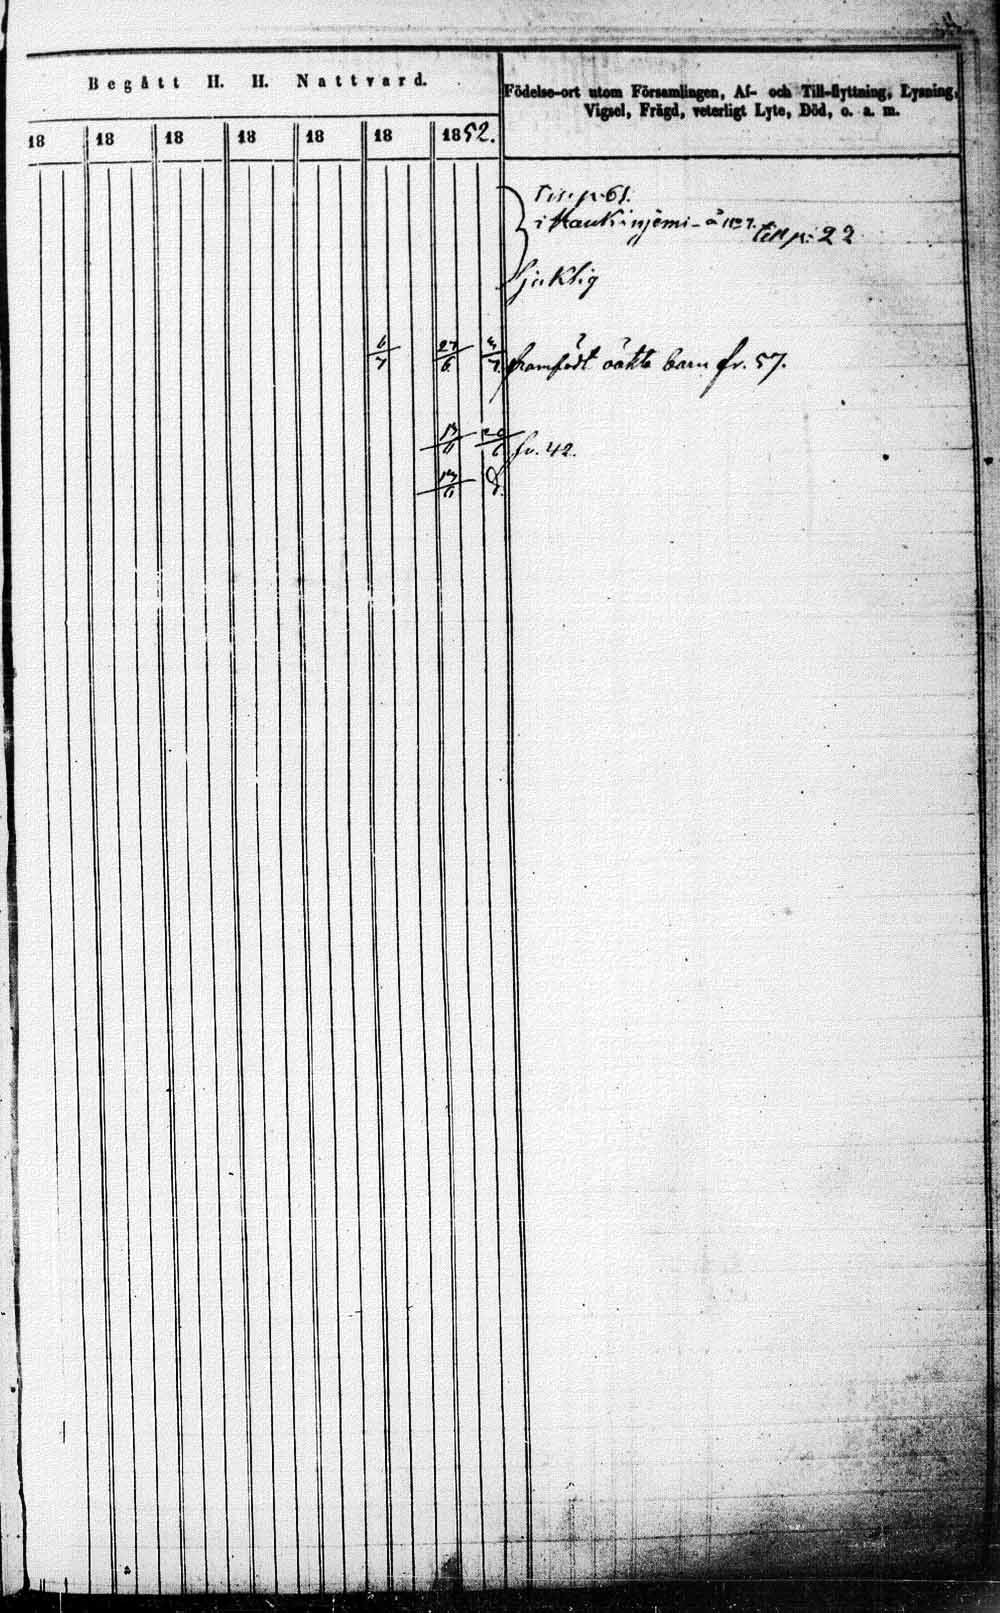 Begått H. H. Nattvard.
Födelse-ort utom Församlingen, Af- och Till-flyttning, Lysning,
Vigsel, Frägd, veterligt Lyte, Död, o. a. m.
18 18 18 18 18 18 1852.
p. 61.
i
till p. 22
sjuklig
6/7 27/6 framfödt oäkta barn fr. 57.
13/6 20/6 fr. 42.
13/6